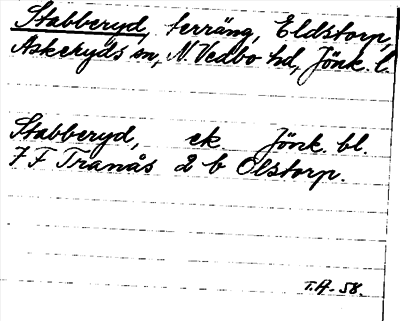 Stabberyd, terräng, Eldstorp,
Askeryds sn, N. Vedbo hd, Jönk. l.
Stabberyd, ek Jönk. bl.
7 F Tranås 2 b Olstorp.
T.A. 58.